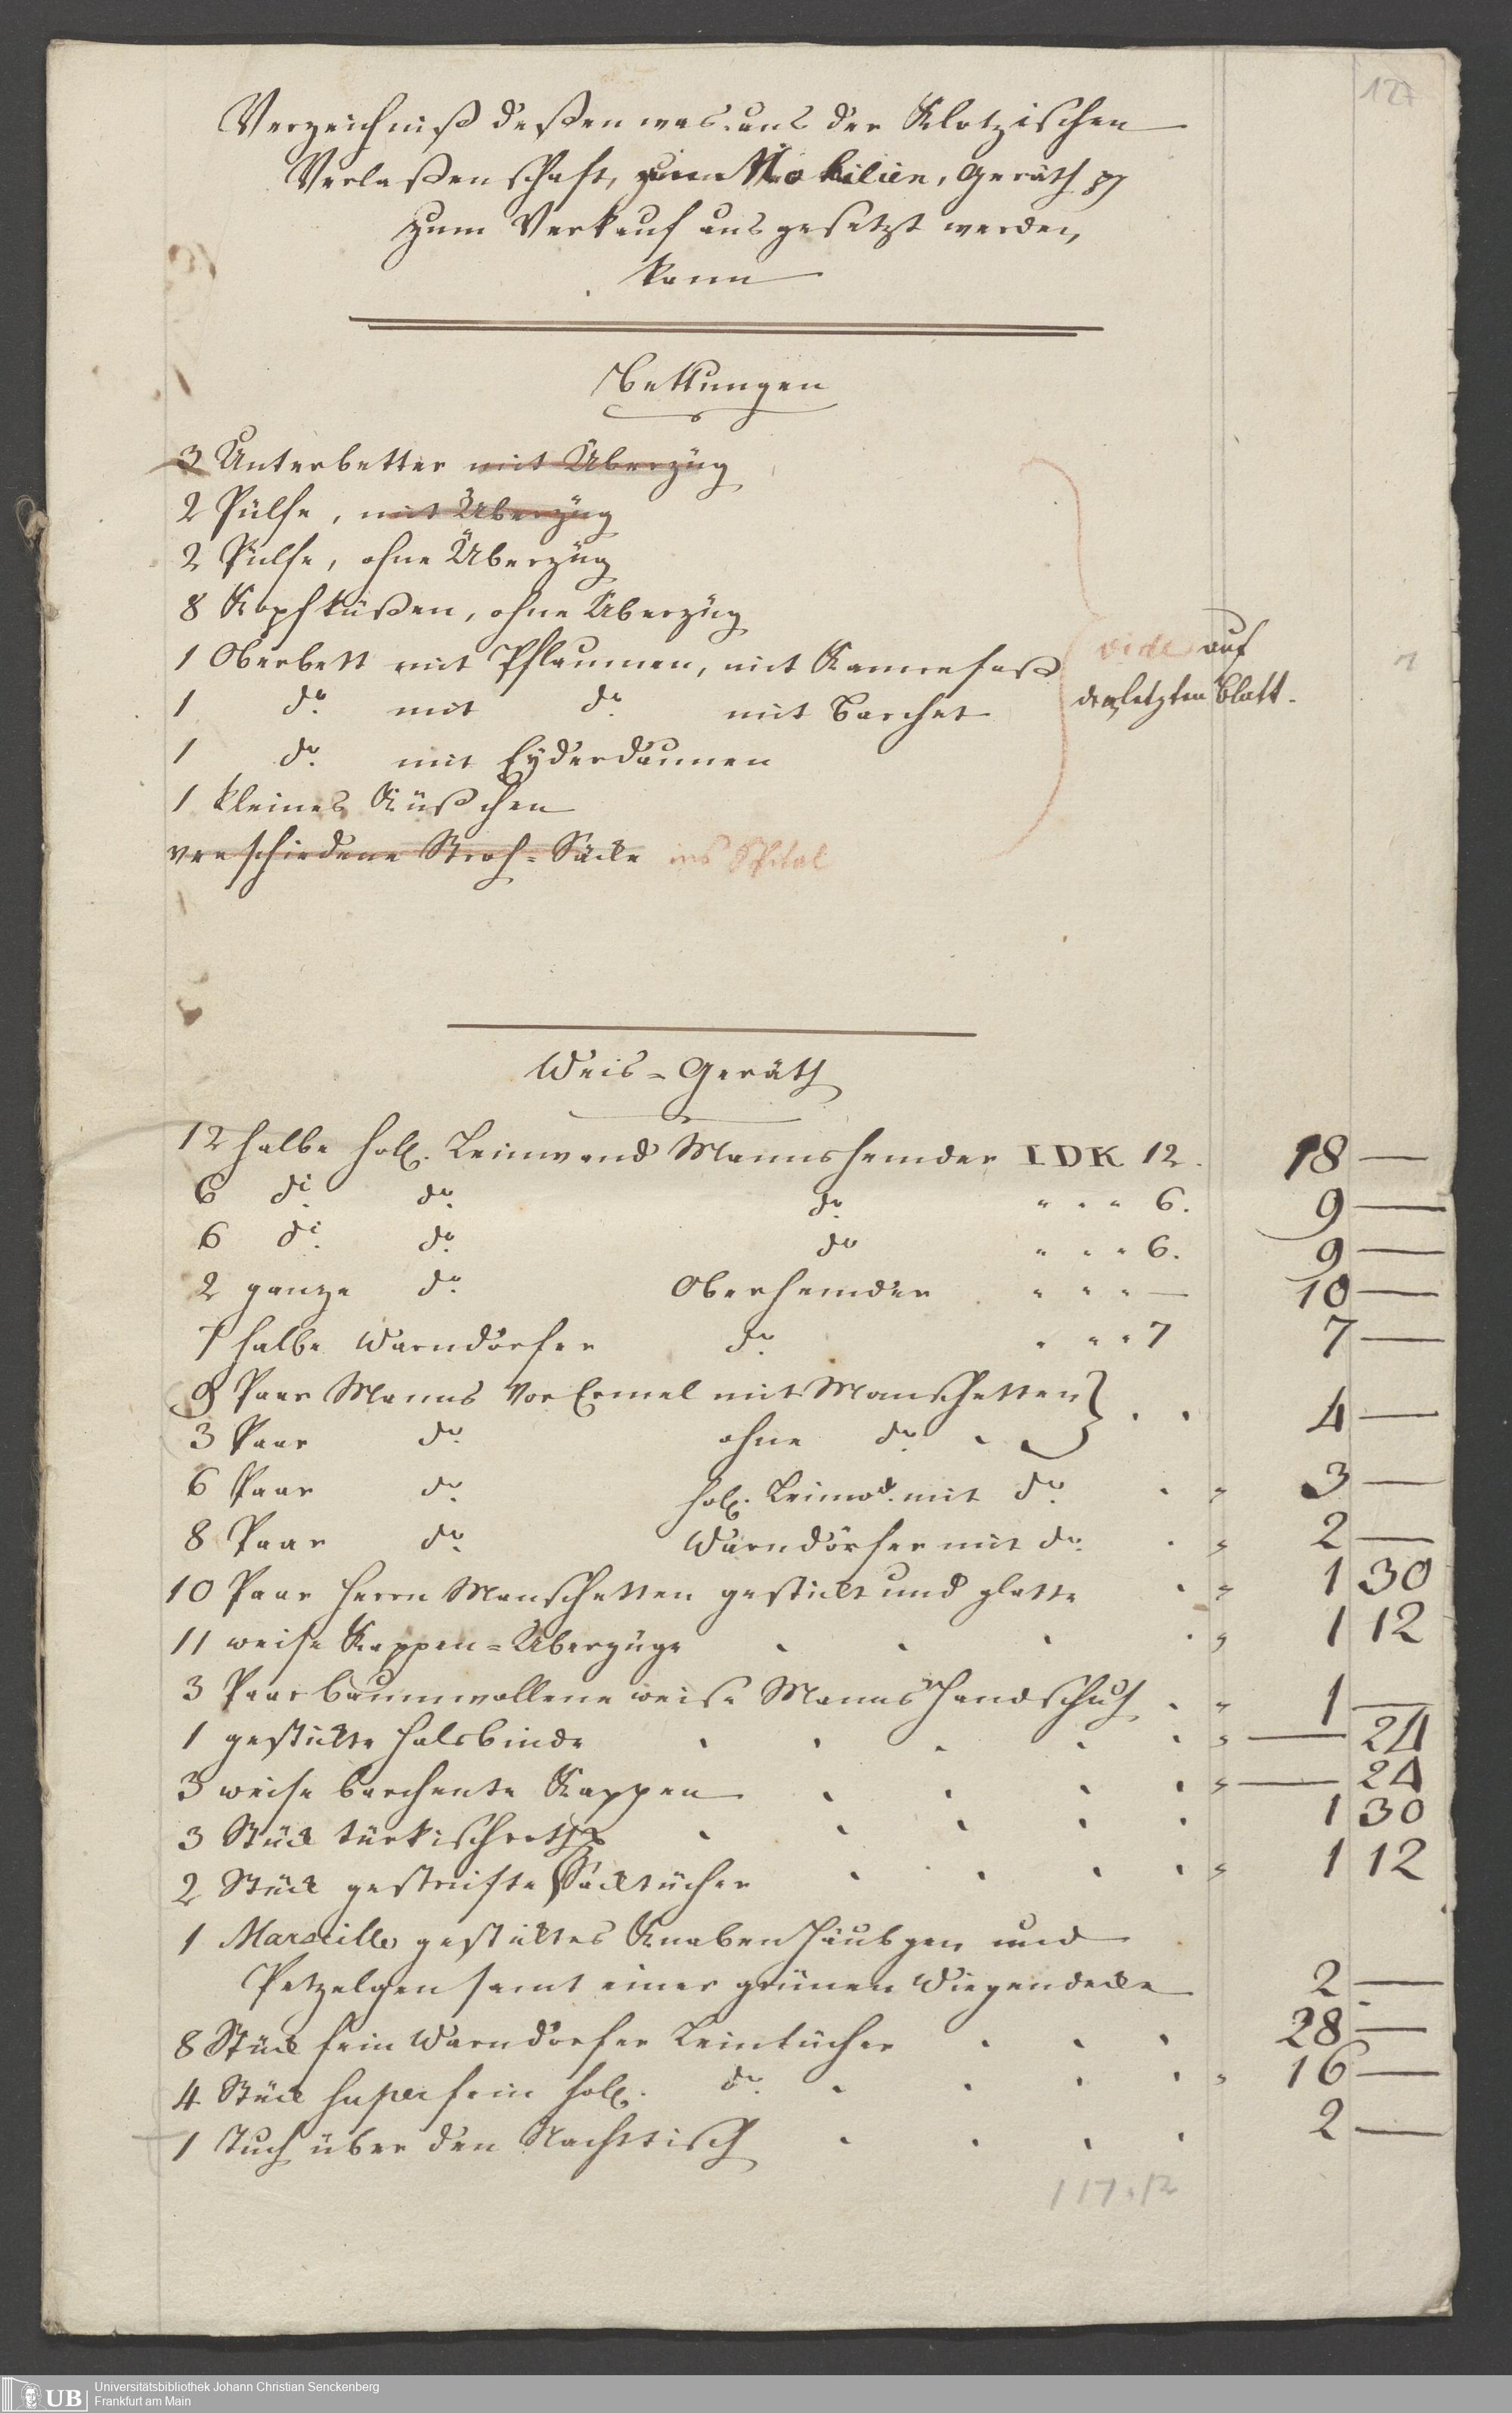 127
Verzeichniß deßen was aus der Klotzischen
Verlaßenschaft, Mobilien, Geräth pp
zum Verkauf ausgesetzt werden
kann
Bettungen
3 Unterbetter mit Überzüg
2 Pülfe, mit Überzüg
2 Pülfe, ohne Überzüg
8 Kopfküßen, ohne Überzüg
1 Oberbett mit Pflaumen, mit Kannefaß
1 do. mit do. mit Barchet
1 do. mit Eyderdaunen
1 kleines Küßchen
verschiedene Stroh=Säcke ins Spital
vide auf
den letzten Blatt.
Weis=Geräth
12 halbe holl. Leinwand Mannshemder IDK 12. 18 —
6 do. do. do. " " " 6. 9 —
6 do. do. do " " " 6. 9 —
2 ganze do. Oberhemder " " " — 10 —
7 halbe Warndörfer do. " " " 7 7 —
9 Paar Manns Vor Ermel mit Manschetten
3 Paar do. ohne do. 4 —
6 Paar do. holl. Leinwd. mit do. 3 —
8 Paar do. Warndörfer mit do. 2 —
10 Paar Herrn Manschetten gestickt und glatte 1 30
11 weise Kappen=Überzüge 1 12
3 Paar baumwollene weise Manns Handschuh 1 —
1 gestickte Halsbinde — 24
3 weise barchente Kappen — 24
3 Stück türkischroth 1 30
2 Stück gestreifte Sacktücher 1 12
1 Marseille gesticktes Knaben Häubgen und
Petzelgen samt einer grünen Wiegendecke 2 —
8 Stück fein Warndörfer Leintücher 28 —
4 Stück super fein holl. do. 16 —
1 Tuch über den Nachttisch 2 —
117.12
UB Universitätsbibliothek Johann Christian Senckenberg
Frankfurt am Main